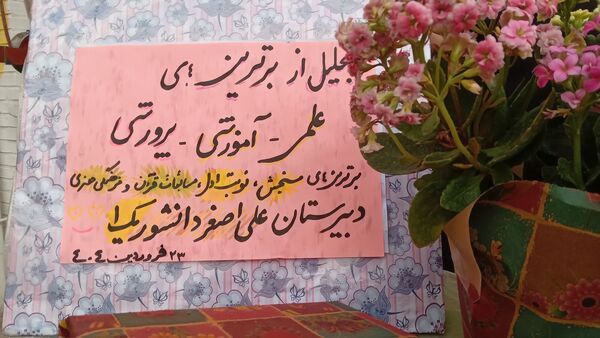 تجلیل از برترین های
علمی - آموزشی - پرورشی
برترین های سنجش، نوبت اول، مسابقات قرآن و فرهنگی هنری
دبیرستان علی اصغر دانشور یک
۲۳ فروردین ۱۴۰۴